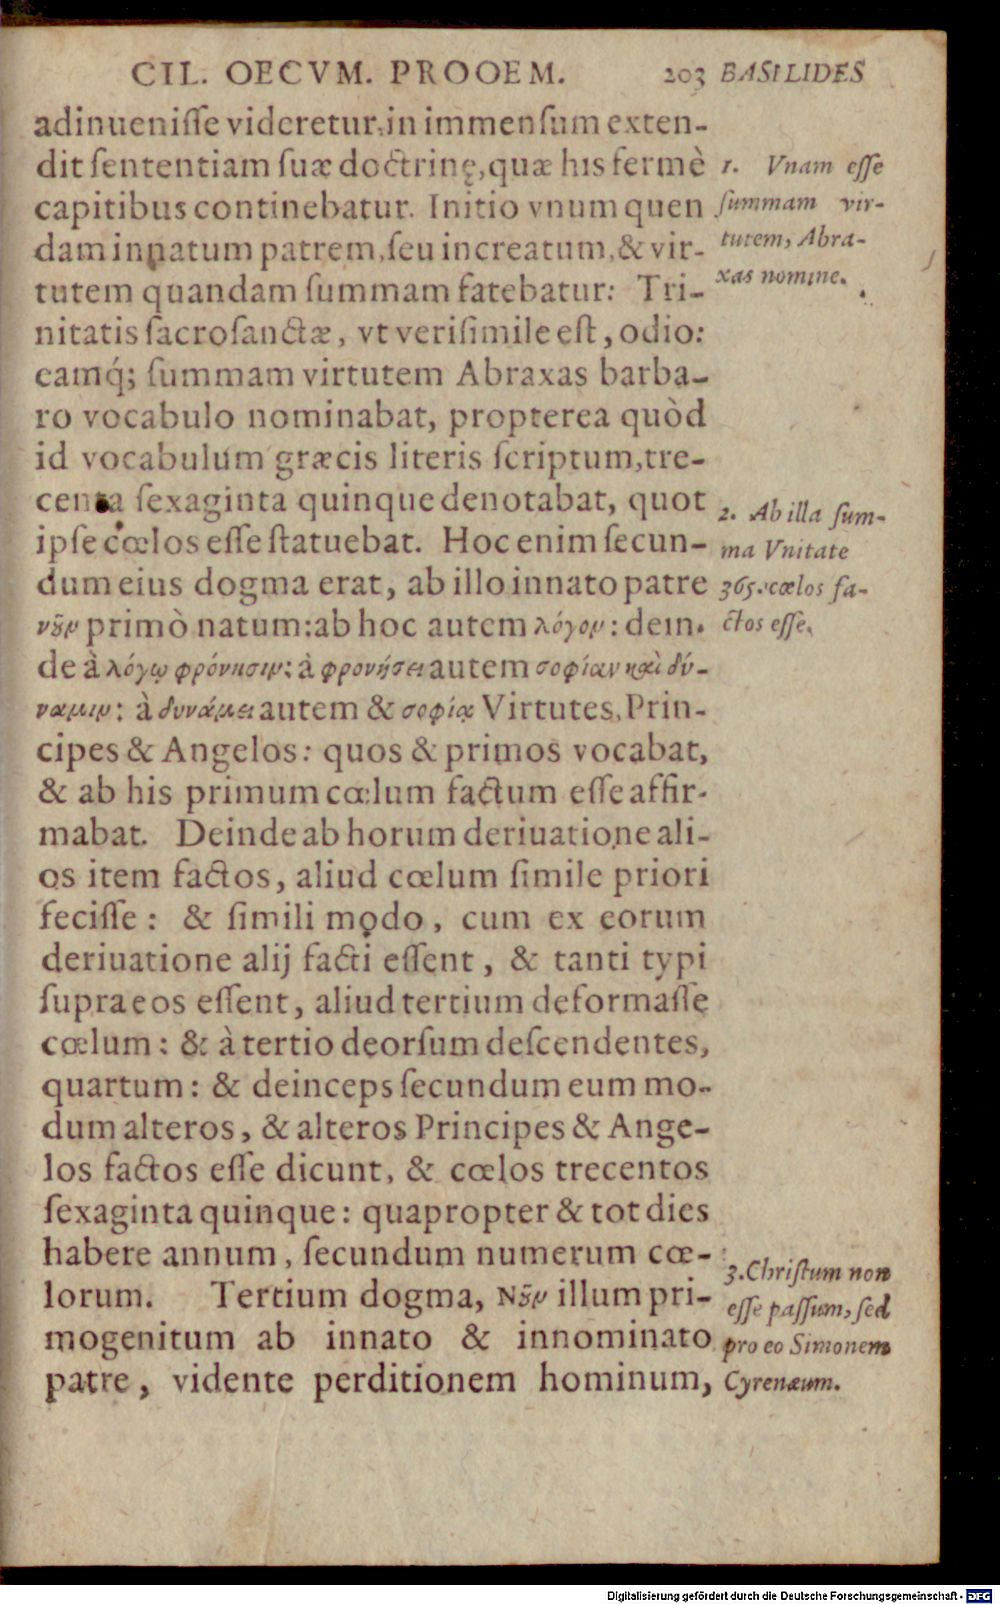 CIL. OECVM. PROOEM. 203 BASILIDES
adinueniſſe videretur, in immenſum exten-
dit ſententiam ſuæ doctrinę, quæ his fermè
capitibus continebatur. Initio vnum quen
dam innatum patrem, ſeu increatum, & vir-
tutem quandam ſummam fatebatur: Tri-
nitatis ſacroſanctæ, vt veriſimile eſt, odio:
eamq́; ſummam virtutem Abraxas barba-
ro vocabulo nominabat, propterea quòd
id vocabulum græcis literis ſcriptum, tre-
centa ſexaginta quinque denotabat, quot
ipſe cœlos eſſe ſtatuebat. Hoc enim ſecun-
dum eius dogma erat, ab illo innato patre
νȣ̃ν primò natum: ab hoc autem λόγον: dein-
de à λόγῳ φρόνησιν: à φρονήσει autem σοφίαν καὶ δύ-
ναμιν: à δυνάμει autem & σοφίᾳ Virtutes, Prin-
cipes & Angelos: quos & primos vocabat,
& ab his primum cœlum factum eſſe affir-
mabat. Deinde ab horum deriuatione ali-
os item factos, aliud cœlum ſimile priori
feciſſe: & ſimili modo, cum ex eorum
deriuatione alij facti eſſent, & tanti typi
ſupra eos eſſent, aliud tertium deformaſſe
cœlum: & à tertio deorſum deſcendentes,
quartum: & deinceps ſecundum eum mo-
dum alteros, & alteros Principes & Ange-
los factos eſſe dicunt, & cœlos trecentos
ſexaginta quinque: quapropter & tot dies
habere annum, ſecundum numerum cœ-
lorum. Tertium dogma, Νȣ̃ν illum pri-
mogenitum ab innato & innominato
patre, vidente perditionem hominum,
1. Vnam eſſe
ſummam vir-
tutem, Abra-
xas nomine.
2. Ab illa ſum-
ma Vnitate
365. cœlos fa-
ctos eſſe.
3. Chriſtum non
eſſe paſſum, ſed
pro eo Simonem
Cyrenæum.
Digitalisierung gefördert durch die Deutsche Forschungsgemeinschaft - DFG